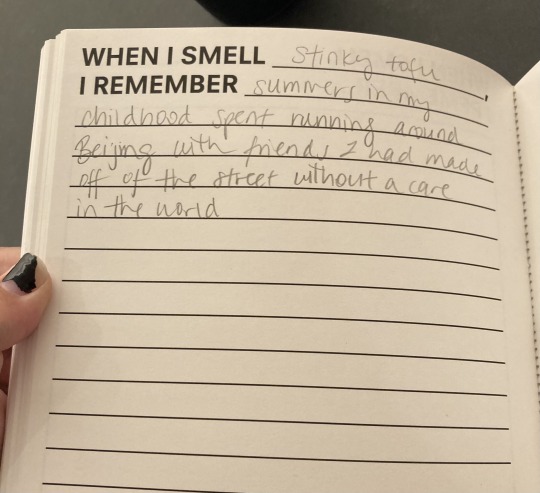 WHEN I SMELL stinky tofu,
I REMEMBER summers in my
childhood spent running around
Beijing with friends I had made
off of the street without a care
in the world